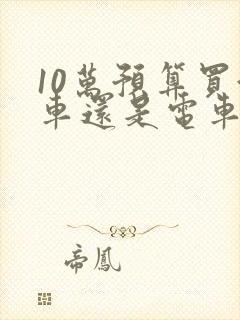 10萬預算買
車還是電車
帝鳳